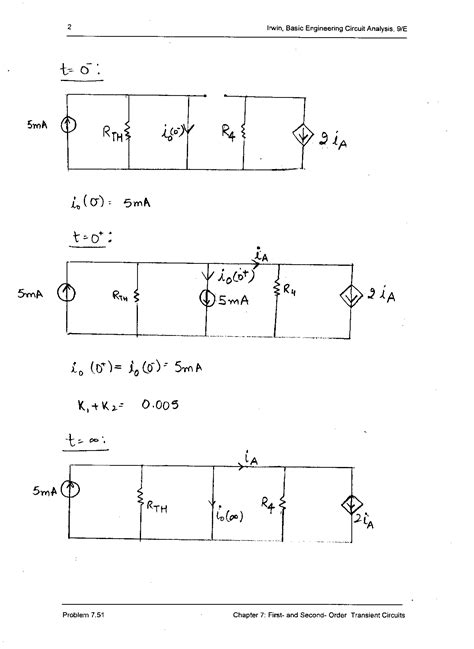 2 Irwin, Basic Engineering Circuit Analysis, 9/E
t = 0⁻ :
5mA R_TH i₀(0⁻) R₄ 2 i_A
i₀(0⁻) = 5mA
t = 0⁺ :
i_A
5mA R_TH i₀(0⁺) 5mA R₄ 2 i_A
i₀(0⁺) = i₀(0⁻) = 5mA
K₁ + K₂ = 0.005
t = ∞ :
i_A
5mA R_TH i₀(∞) R₄ 2 i_A
Problem 7.51 Chapter 7: First- and Second- Order Transient Circuits